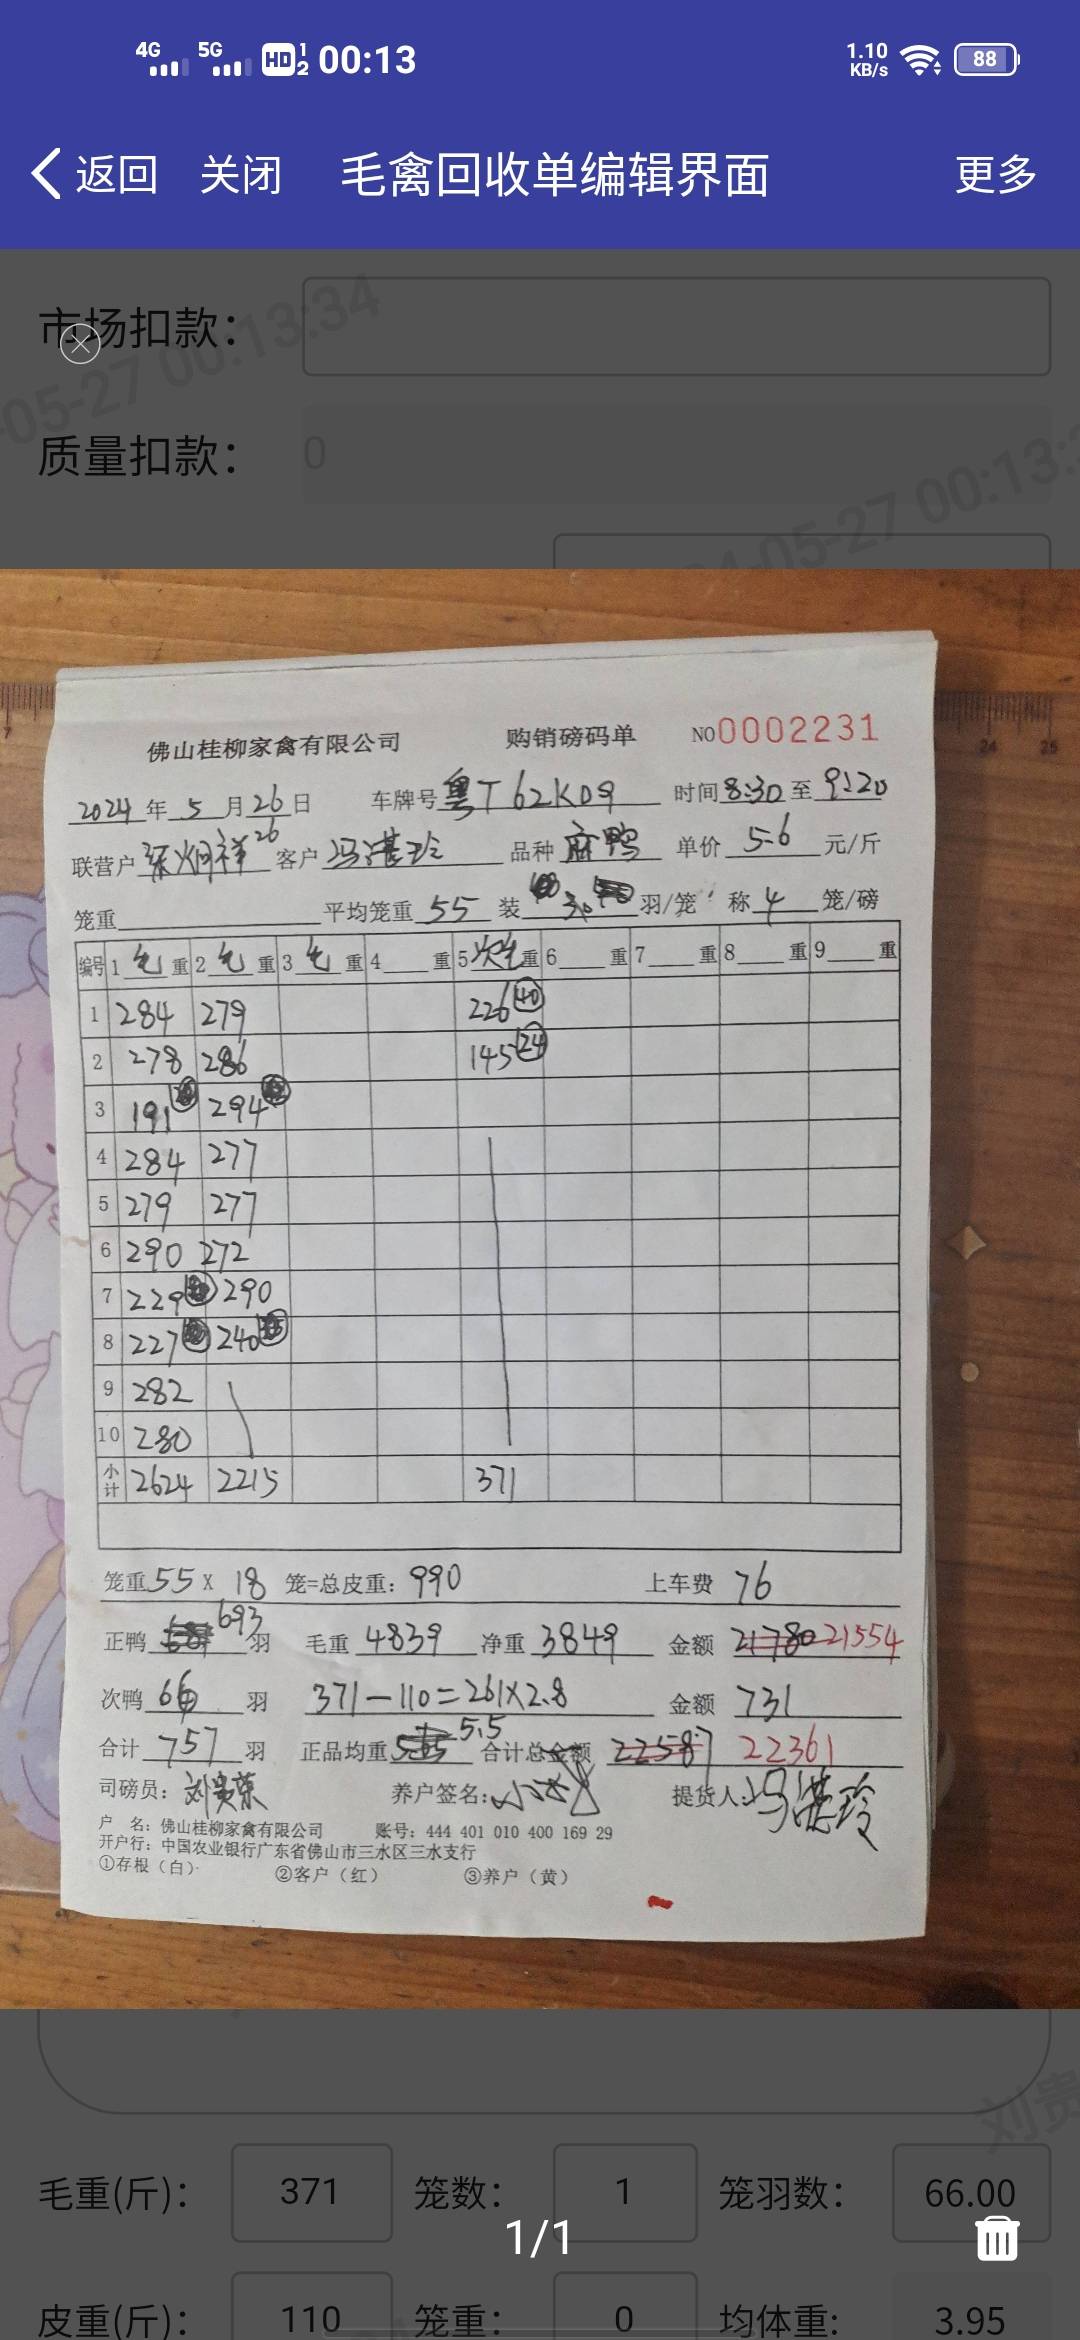 4G 5G HD 1 2 00:13 1.10 KB/s 88
返回 关闭 毛禽回收单编辑界面 更多
市场扣款：
-05-27 00:13:34
质量扣款： 0
05-27 00:13:3
佛山桂柳家禽有限公司 购销磅码单 NO0002231
2024年5月26日 车牌号粤T62K09 时间8:30至9:20
联营户 26 客户 品种麻鸭 单价5.6元/斤
笼重 平均笼重55 装30羽/笼 称4笼/磅
编号 1毛重 2毛重 3毛重 4重 5次毛重 6重 7重 8重 9重
1 284 279 226 40
2 278 286 145 24
3 191 294
4 284 277
5 279 277
6 290 272
7 229 290
8 227 240
9 282
10 280
小计 2624 2215 371
笼重55X18笼=总皮重：990 上车费76
正鸭693羽 毛重4839 净重3849 金额21780 21554
次鸭66羽 371-110=261X2.8 金额731
合计757羽 正品均重5.5 合计总金额22587 22361
司磅员： 养户签名： 提货人：
户 名：佛山桂柳家禽有限公司 账号：444 401 010 400 169 29
开户行：中国农业银行广东省佛山市三水区三水支行
①存根（白） ②客户（红） ③养户（黄）
刘贵
毛重(斤)： 371 笼数： 1 笼羽数： 66.00
1/1
皮重(斤)： 110 笼重： 0 均体重： 3.95